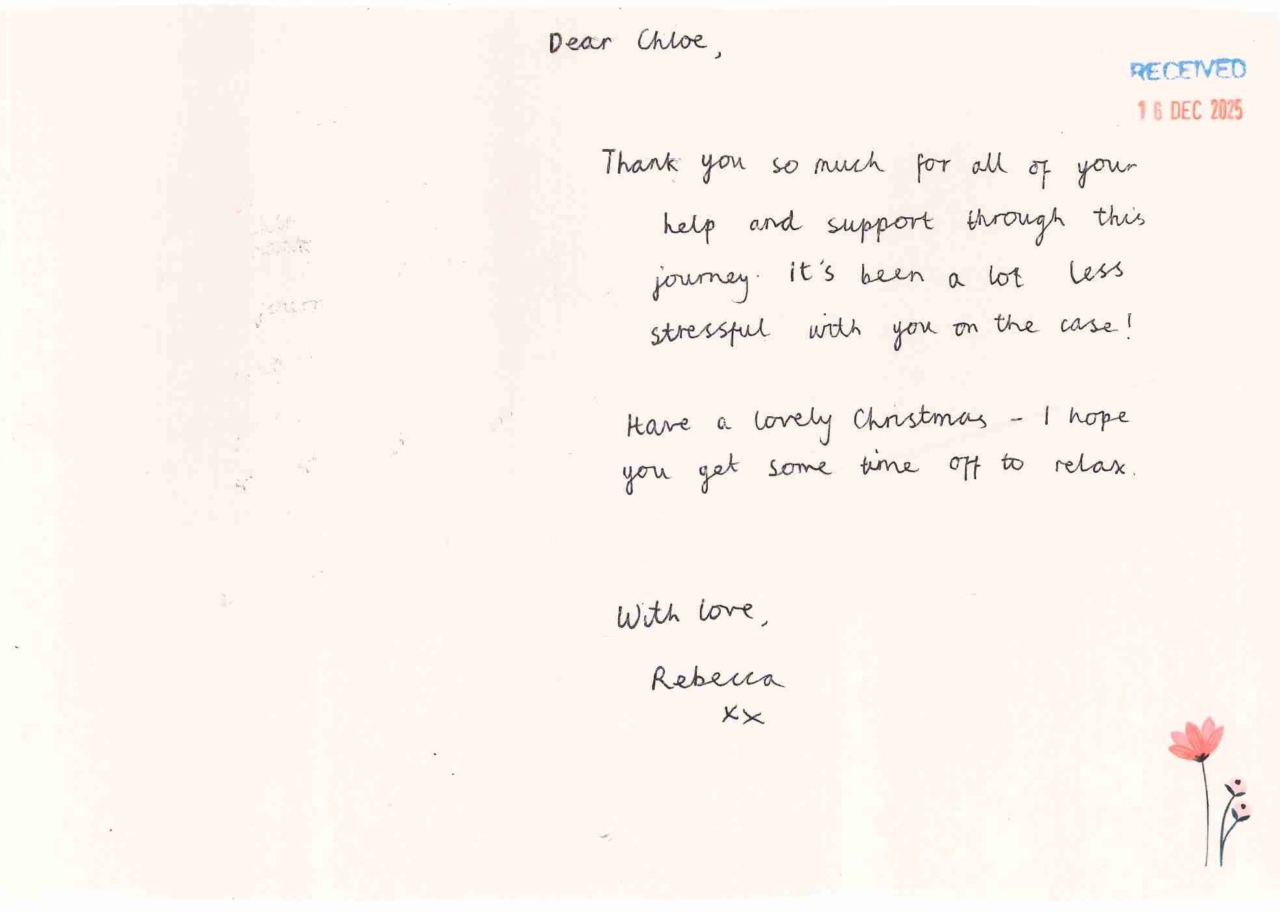 Dear Chloe,
RECEIVED
16 DEC 2025
Thank you so much for all of your
help and support through this
journey. it's been a lot less
stressful with you on the case!
Have a lovely Christmas - I hope
you get some time off to relax.
With love,
Rebecca
xx